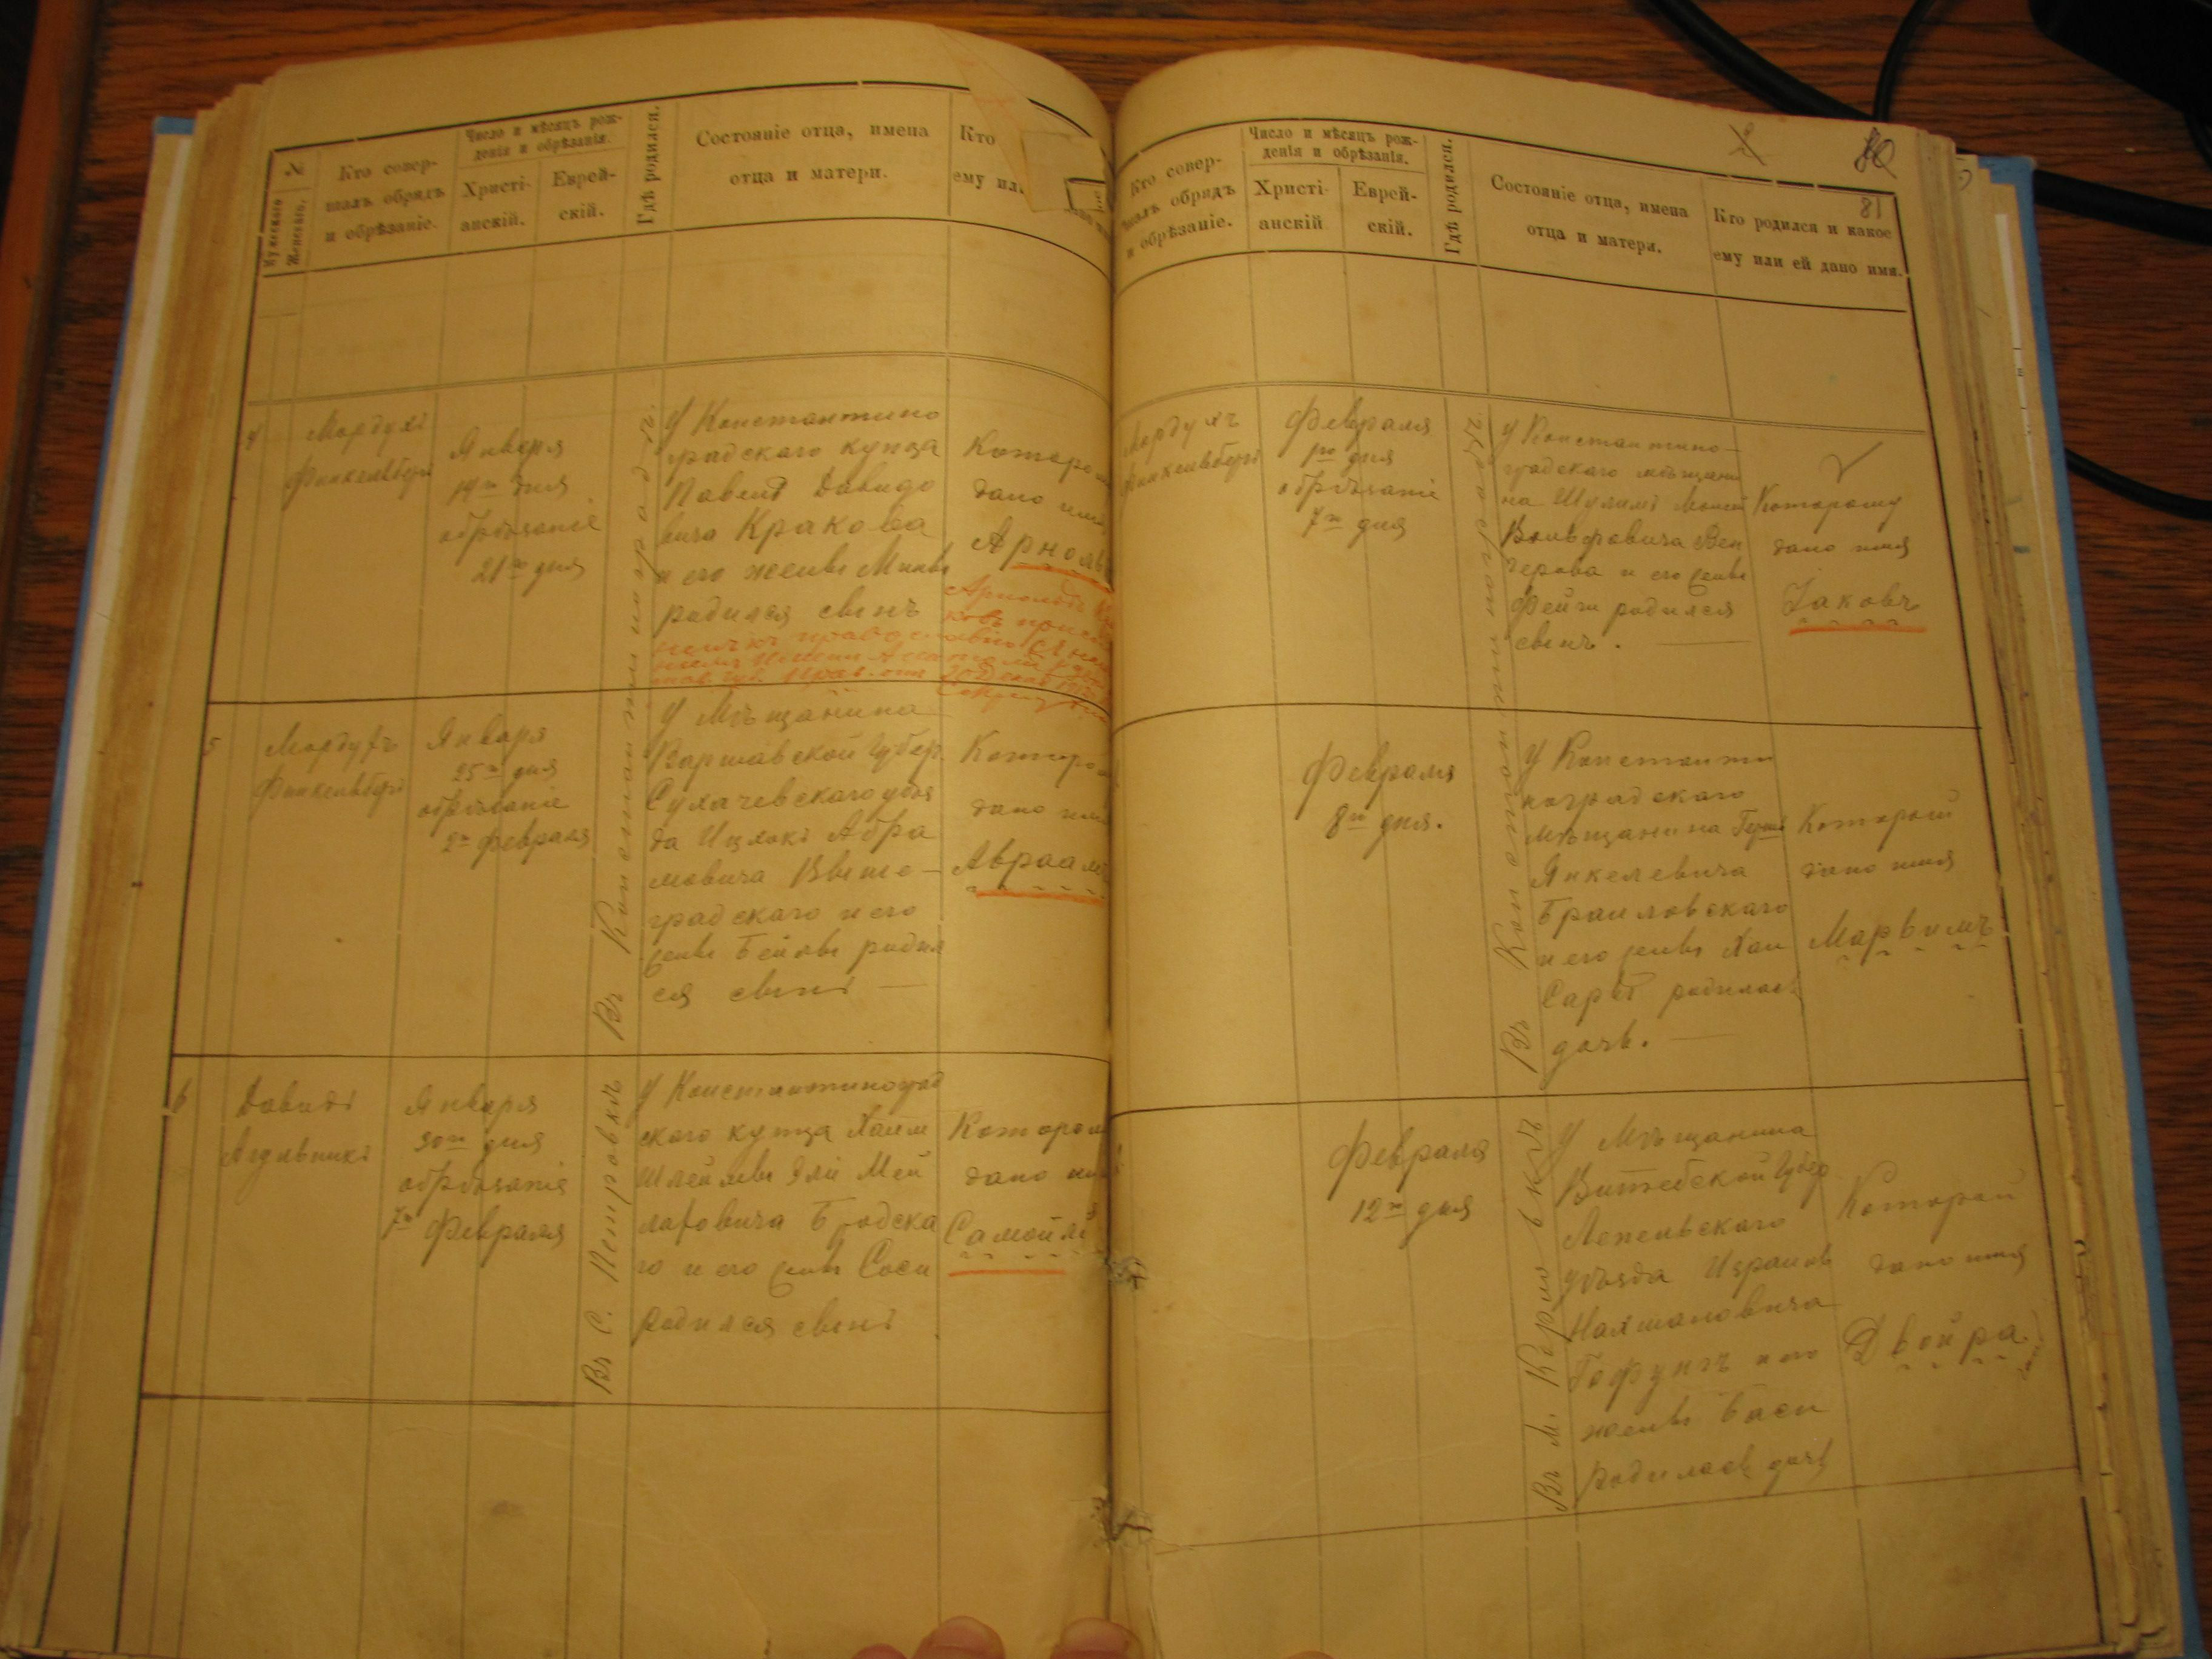 №
Мужескаго
Женскаго.
Кто совер-
шалъ обрядъ
и обрѣзаніе.
Число и мѣсяцъ рож-
денія и обрѣзанія.
Христі-
анскій.
Еврей-
скій.
Гдѣ родился.
Состояніе отца, имена
отца и матери.
Кто
ему или
4
Мордухъ
Финкельбергъ
Января
14го дня
обрѣзаніе
21го дня
Въ Константиноградѣ.
У Константино
градскаго купца
Давидо
вича Кракова
и его женѣ
родился сынъ
Которо
дано имя
Арноль
5
Мордухъ
Финкельбергъ
Января
25го дня
обрѣзаніе
2го февраля
У Мѣщанина
Варшавской Губер.
Сухачевскаго уѣз
да Ицхокъ Абра
мовича Выше-
градскаго и его
женѣ Бейлѣ родил
ся сынъ
Которо
дано имя
Авраамъ
6
Давидъ
Января
30го дня
обрѣзаніе
7го Февраля
Въ С. Петровкѣ
У Константиноград
скаго купца Хаим
Бродска
го и его женѣ Соси
родился сынъ
Которо
дано им
Самойлъ
81
Кто совер-
шалъ обрядъ
и обрѣзаніе.
Число и мѣсяцъ рож-
денія и обрѣзанія.
Христі-
анскій
Еврей-
скій.
Гдѣ родился.
Состояніе отца, имена
отца и матери.
Кто родился и какое
ему или ей дано имя.
Мордухъ
Финкельбергъ
Февраля
1го дня
обрѣзаніе
7го дня
Въ Константиноградѣ
У Константино-
градскаго мѣщани
на Шулимъ
Вольфовича Вен
герова и его женѣ
Фейги родился
сынъ.
Которому
дано имя
Іаковъ
Февраля
8го дня.
У Константи
ноградскаго
мѣщанина
Янкелевича
Браиловскаго
и его женѣ Хаи
Сары родилась
дочь.
Которой
дано имя
Марьимъ
Февраля
12го дня
Въ М. Карловкѣ
У Мѣщанина
Витебской Губер
Лепельскаго
уѣзда Израиль
Нахмановича
и его
женѣ Баси
родилась дочь
Которой
дано имя
Двойра